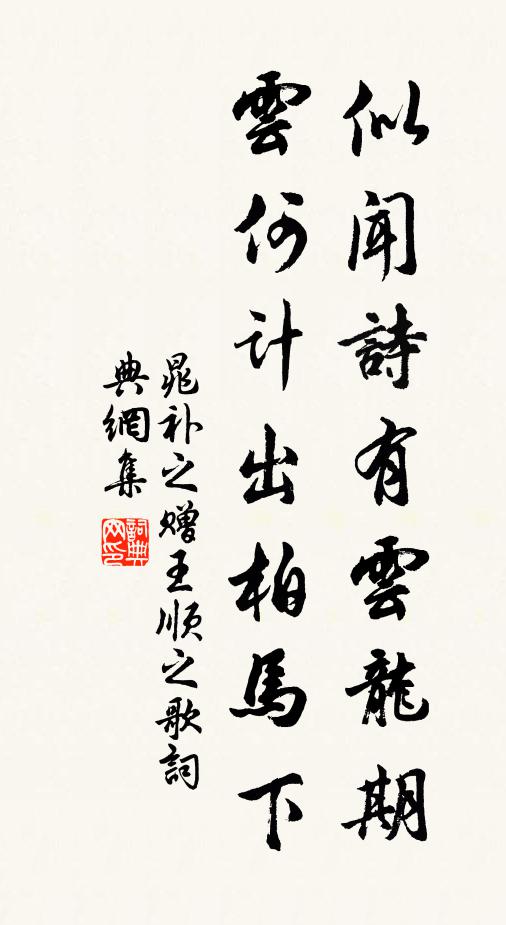 似聞詩有雲龍期
雲何計出柏馬下
晁补之赠王顺之歌詞
典網集
詞典網印